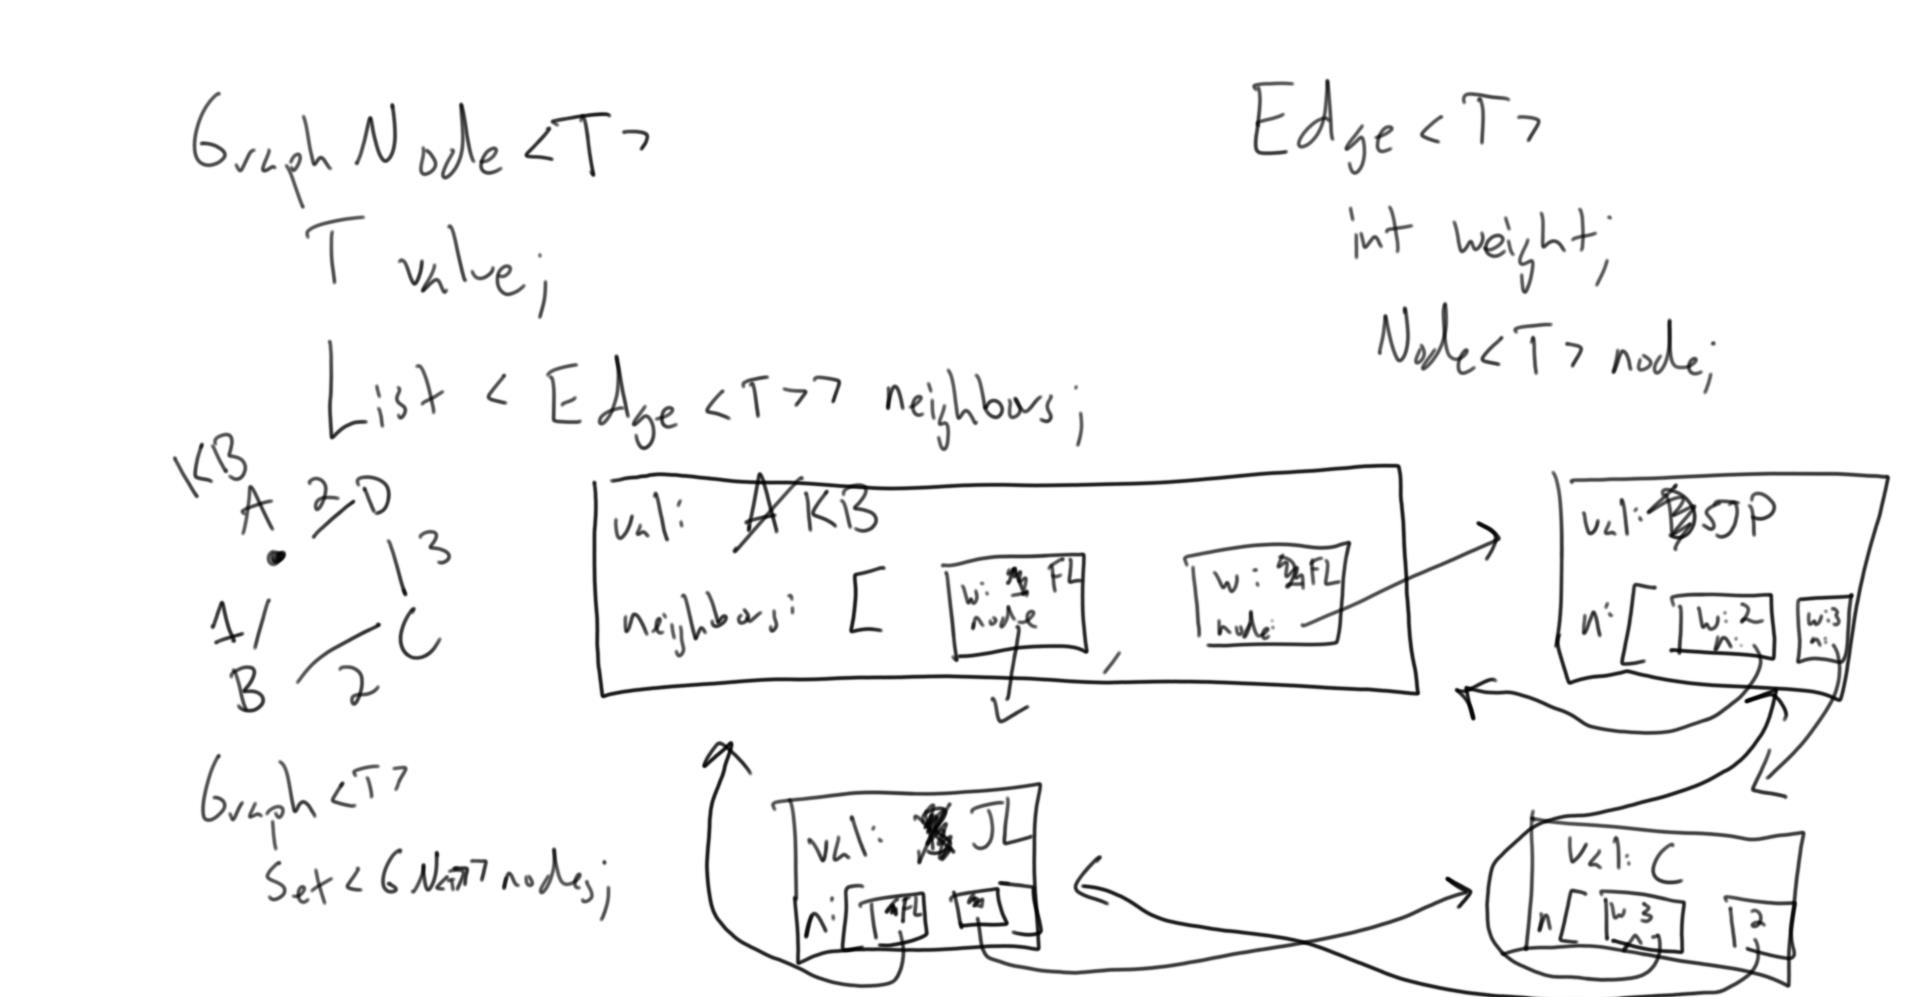 Graph Node <T>
T value;
List < Edge <T>> neighbors;
Edge <T>
int weight;
Node<T> node;
KB
A 2 D
3
1
B 2 C
Graph <T>
Set < GN<T>> nodes;
val: A KB
neighbors: [ w: FL
node
,
w: FL
node:
val: SJP
n: [ w: 2
n:
w: 3
n:
val: JL
n: [ FL ]
val: C
n [ w 3
n
2